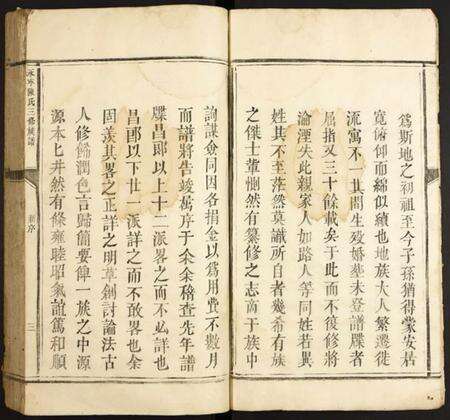 爲斯地之初祖至今子孫猶得蒙安居
寬俯仰而綿似續也地族大人繁遷徙
流寓不一其間生殁婚葬未登譜牒者
屈指又三十餘載矣于此而不復修將
淪湮失此親家人如路人等同姓若異
姓其不至茫然莫識所自者幾希有族
之傑士輩惻然有纂修之志商于族中
詢謀僉同因各捐金以爲用費不數月
而譜將告竣旁序于余余稽查先年譜
牒昌郎以上十二派畧之而不必詳也
昌郎以下廿一派詳之而不敢畧也余
固羨其畧之正詳之明草創討論法古
人修飾潤色言歸簡要俾一族之中源
源本本井然有條雍睦昭氣誼篤和順
陳氏三修族譜
序
三